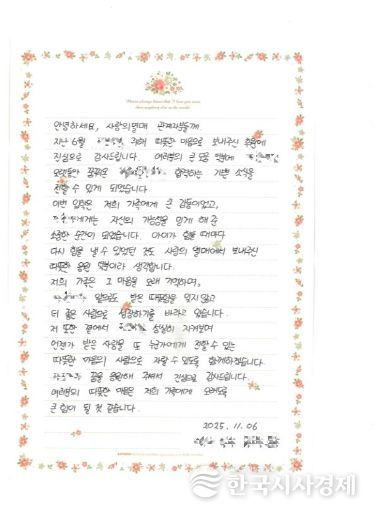 안녕하세요, 사랑의열매 관계자분들께.
지난 6월 위해 따뜻한 마음으로 보내주신 후원에
진심으로 감사드립니다. 여러분의 큰 도움 덕분에
오랫동안 꿈꿔온 합격하는 기쁜 소식을
전할 수 있게 되었습니다.
이번 입학은 저희 가족에게 큰 감동이었고,
에게는 자신의 가능성을 믿게 해 준
소중한 순간이 되었습니다. 아이가 힘들 때마다
다시 힘을 낼 수 있었던 것도 사랑의 열매에서 보내주신
따뜻한 응원 덕분이라 생각합니다.
저희 가족은 그 마음을 오래 기억하며,
앞으로도 받은 따뜻함을 잊지 않고
더 좋은 사람으로 성장하기를 바라고 있습니다.
저 또한 곁에서 성실히 지켜보며
언젠가 받은 사랑을 또 누군가에게 전할 수 있는
따뜻한 마음의 사람으로 자랄 수 있도록 함께하겠습니다.
꿈을 응원해 주셔서 진심으로 감사드립니다.
여러분의 따뜻한 마음은 저희 가족에게 오래도록
큰 힘이 될 것 같습니다.
2025. 11. 06
한국시사경제